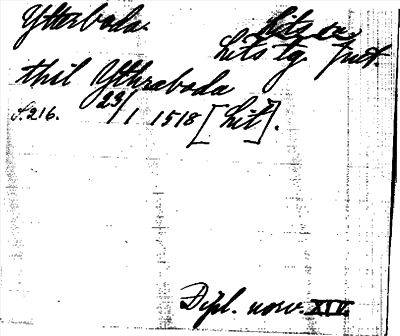 Ytterboda.
Lits tg Jmt.
thil Ythraboda
S. 216. 23/1 1518 [Lit].
Dipl. norv. XIV.